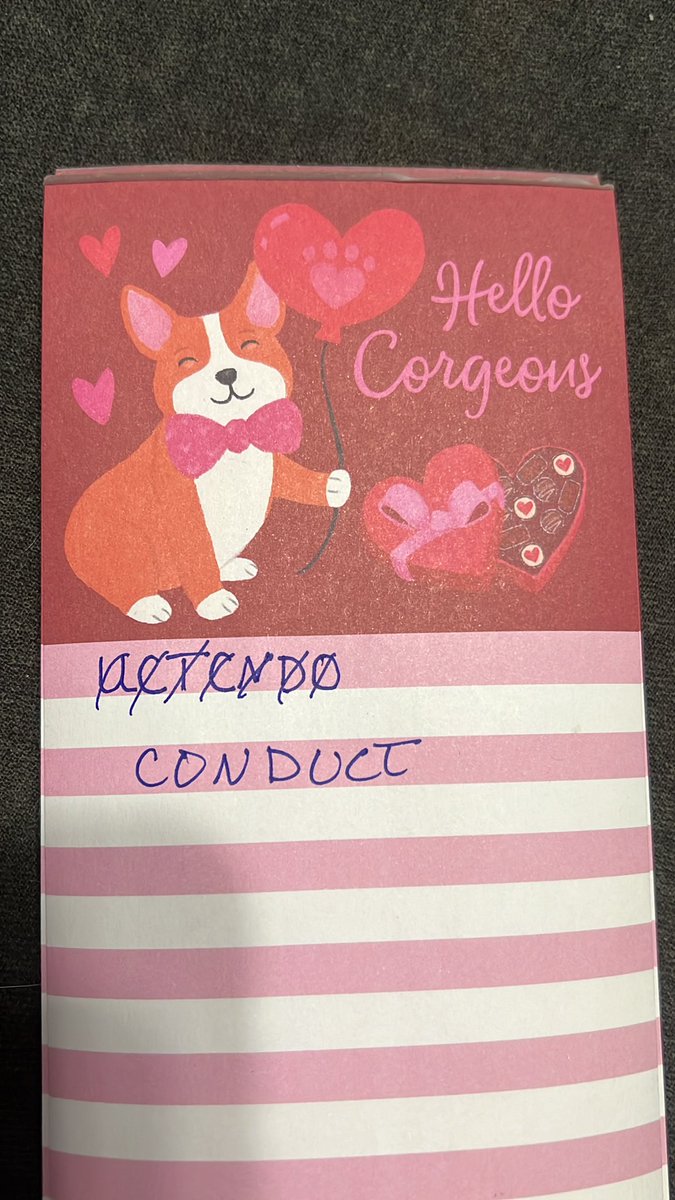 Hello
Corgeous
CONDUCT